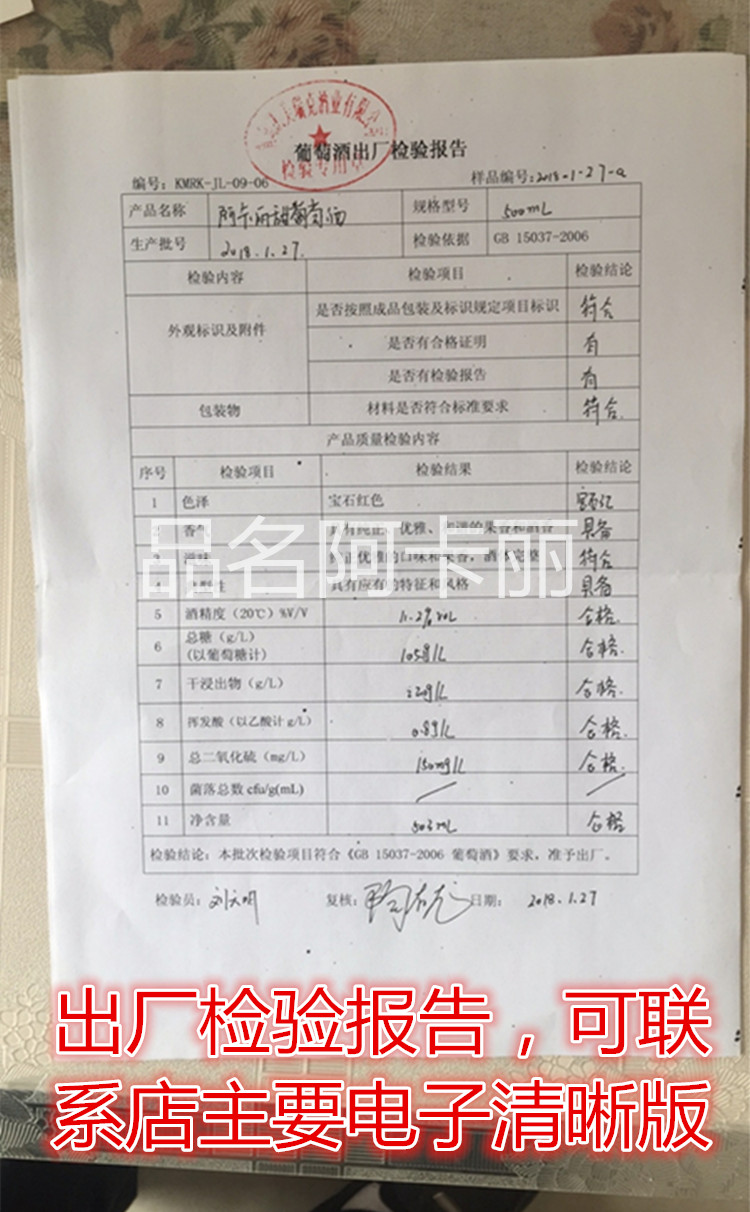 美瑞克酒业有限公
检验专用章
葡萄酒出厂检验报告
编号：KMRK-JL-09-06 样品编号：2018-1-27-a
产品名称 阿卡丽甜葡萄酒 规格型号 500mL
生产批号 2018.1.27. 检验依据 GB 15037-2006
检验内容 检验项目 检验结论
外观标识及附件 是否按照成品包装及标识规定项目标识 符合
是否有合格证明 有
是否有检验报告 有
包装物 材料是否符合标准要求 符合.
产品质量检验内容
序号 检验项目 检验结果 检验结论
1 色泽 宝石红色 宝石红
2 香气 优雅、 的果香和酒香 具备
3 滋味 优雅的口味和果香，酒体完整 符合
4 具有应有的特征和风格 具备
品名阿卡丽
5 酒精度（20℃）%V/V 11.2%VOL 合格.
6 总糖（g/L） (以葡萄糖计) 105g/L 合格.
7 干浸出物（g/L） 22g/L 合格.
8 挥发酸（以乙酸计 g/L） 0.8g/L 合格.
9 总二氧化硫（mg/L） 150mg/L 合格.
10 菌落总数 cfu/g(mL) / /
11 净含量 503mL 合格
检验结论：本批次检验项目符合《GB 15037-2006 葡萄酒》要求，准予出厂。
检验员：刘天明 复核： 日期： 2018.1.27
出厂检验报告，可联
系店主要电子清晰版